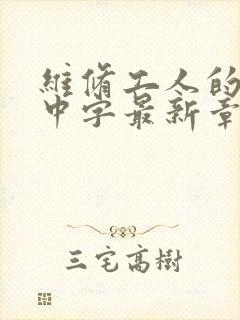 維脩工人的
中字最新章
三宅高樹